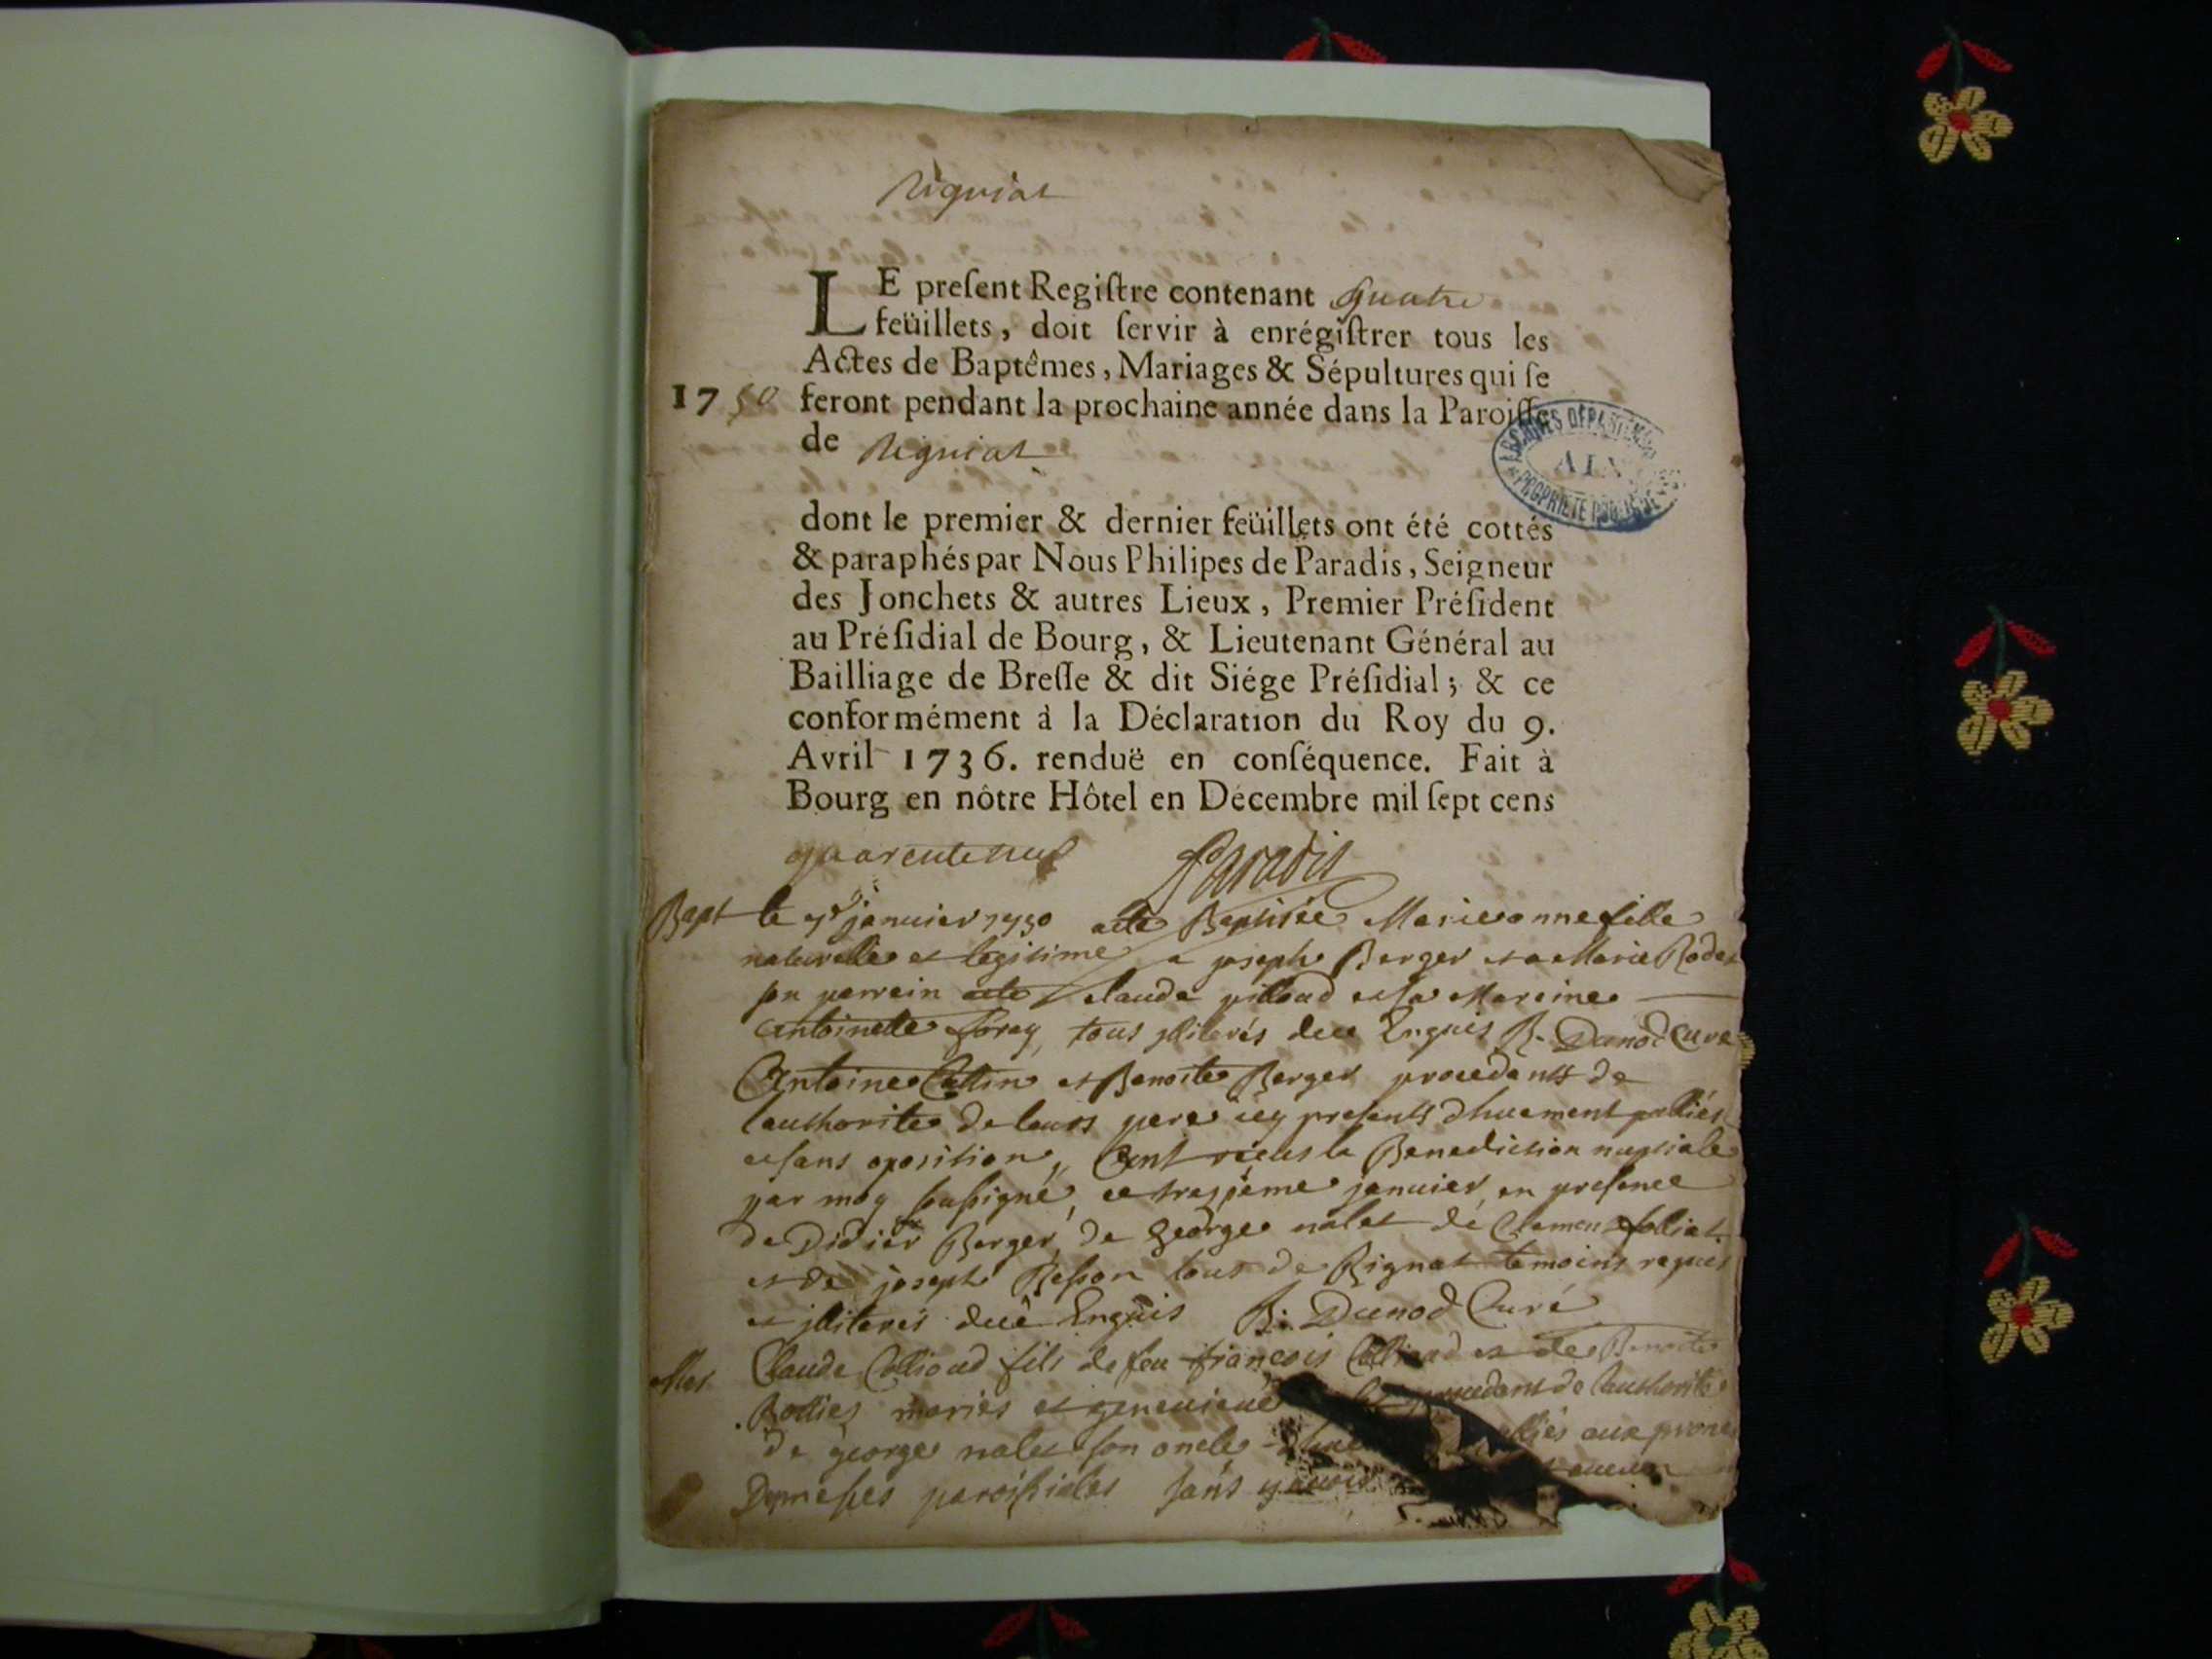 Rigniat
LE preſent Regiſtre contenant quatre
feüillets, doit ſervir à enrégiſtrer tous les
Actes de Baptêmes, Mariages & Sépultures qui ſe
1750 feront pendant la prochaine année dans la Paroiſſe
de Rigniat
ARCHIVES DÉPARTEMENTALES
AIN
PROPRIETE PUBLIQUE
dont le premier & dernier feüillets ont été cottés
& paraphés par Nous Philipes de Paradis, Seigneur
des Jonchets & autres Lieux, Premier Préſident
au Préſidial de Bourg, & Lieutenant Général au
Bailliage de Breſſe & dit Siége Préſidial; & ce
conformément à la Déclaration du Roy du 9.
Avril 1736. renduë en conſéquence. Fait à
Bourg en nôtre Hôtel en Décembre mil ſept cens
quarente neuf Paradis
Bapt le janvier 1750 Baptisée Marieanne fille
naturelle et legitime a joseph Berger et a Marie
son parrein Claude et sa Mareine
antoinette tous illiterés Enquis B. Dunod Curé
Antoine et Benoite Berger procedants de
lauthorite de leurs pere icy presents dhuement
et sans oposition, ont la Benediction nuptiale
par moy soussigné, ce janvier, en presence
de Didier Berger, de george nalet de
et de joseph Besson tous de Rignat temoins requis
et illiterés Enquis B. Dunod Curé
Claude Collioud fils de feu françois Collioud et de Benoite
mariés et procedant de lauthorité
de george nalet son oncle aux prones
messes paroissiales sans